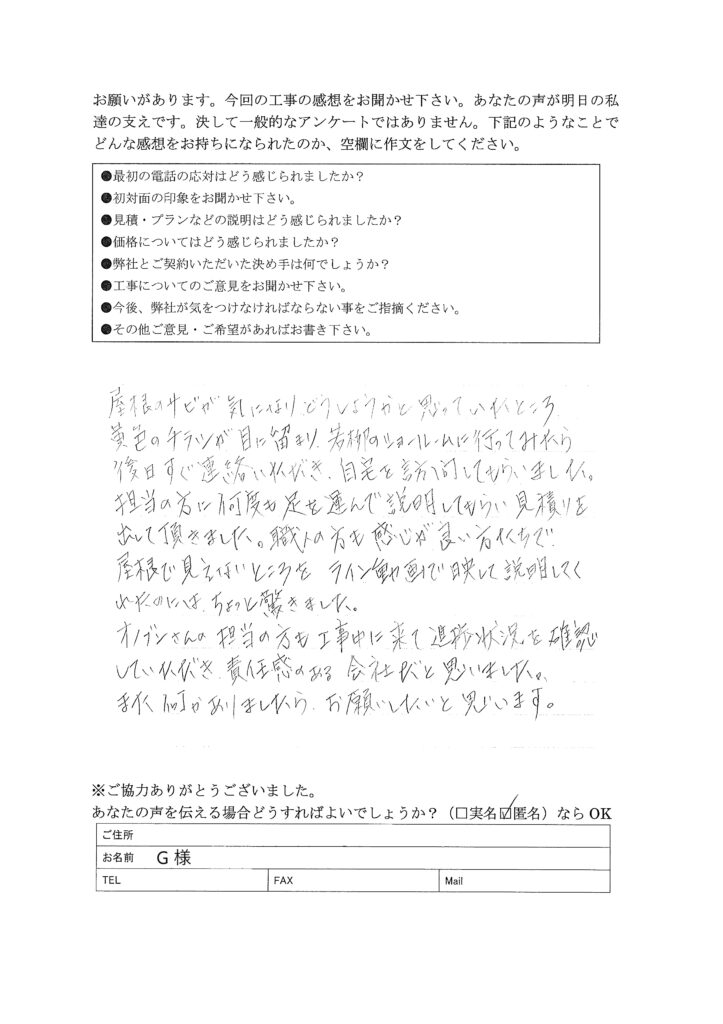 お願いがあります。今回の工事の感想をお聞かせ下さい。あなたの声が明日の私
達の支えです。決して一般的なアンケートではありません。下記のようなことで
どんな感想をお持ちになられたのか、空欄に作文をしてください。
●最初の電話の応対はどう感じられましたか？
●初対面の印象をお聞かせ下さい。
●見積・プランなどの説明はどう感じられましたか？
●価格についてはどう感じられましたか？
●弊社とご契約いただいた決め手は何でしょうか？
●工事についてのご意見をお聞かせ下さい。
●今後、弊社が気をつけなければならない事をご指摘ください。
●その他ご意見・ご希望があればお書き下さい。
屋根のサビが気になり、どうしようかと思っていたところ
黄色のチラシが目に留まり、若柳のショールームに行ってみたら
後日すぐ連絡いただき、自宅を訪問してもらいました。
担当の方に何度も足を運んで説明してもらい見積りを
出して頂きました。職人の方も感じが良い方たちで
屋根で見えないところを ライン動画で映して説明してく
れたのには、ちょっと驚きました。
オノブンさんの担当の方も工事中に来て進捗状況を確認
していただき、責任感のある会社だと思いました。
また何かありましたら、お願いしたいと思います。
※ご協力ありがとうございました。
あなたの声を伝える場合どうすればよいでしょうか？（□実名☑匿名）ならOK
ご住所
お名前 G 様
TEL FAX Mail